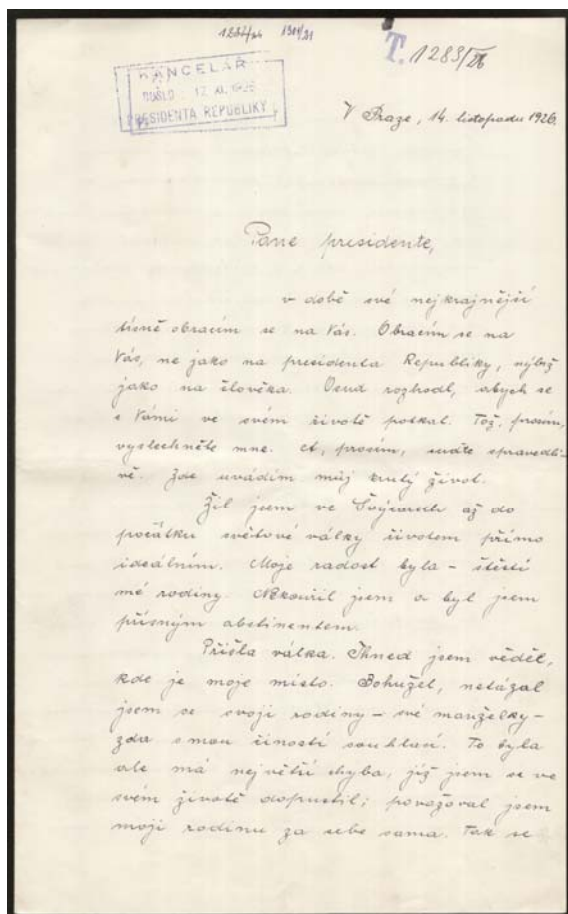 1301/21
T. 1283/26
KANCELÁŘ
DOŠLO 17. XI. 1926
PRESIDENTA REPUBLIKY
V Praze, 14. listopadu 1926.
Pane presidente,
v době své nejkrajnější
tísně obracím se na Vás. Obracím se na
Vás, ne jako na presidenta Republiky, nýbrž
jako na člověka. Osud rozhodl, abych se
s Vámi ve svém životě potkal. Tož, prosím,
vyslechněte mne. A, prosím, suďte spravedli-
vě. Zde uvádím můj krutý život.
Žil jsem ve Švýcarsku až do
počátku světové války životem přímo
ideálním. Moje radost byla – štěstí
mé rodiny. Nekouřil jsem a byl jsem
přísným abstinentem.
Přišla válka. Ihned jsem věděl,
kde je moje místo. Bohužel, netázal
jsem se svojí rodiny – své manželky –
zda s mou činností souhlasí. To byla
ale má největší chyba, jíž jsem se ve
svém životě dopustil; považoval jsem
moji rodinu za sebe sama. Tak se